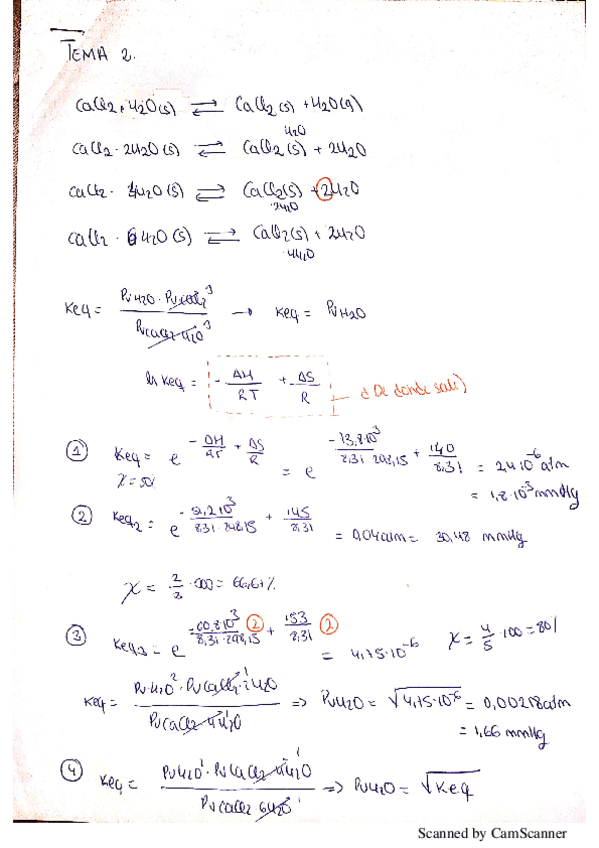 TEMA 2.
CaCl2·H2O(s) ⇌ CaCl2(s) + H2O(g)
CaCl2·2H2O(s) ⇌ CaCl2(s)·H2O + 2H2O
CaCl2·4H2O(s) ⇌ CaCl2(s)·2H2O + 2H2O
CaCl2·6H2O(s) ⇌ CaCl2(s)·4H2O + 2H2O
Keq = PvH2O · PvCaCl2 / PvCaCl2·H2O → Keq = PvH2O
ln Keq = - ΔH/RT + ΔS/R ¿De donde sale?
① Keq = e^(-ΔH/RT + ΔS/R) = e^( /8,31·298,15 + 140/8,31) = 2,4·10^-6 atm
χ = 50% = 1,8·10^-3 mmHg
② Keq2 = e^( /8,31·298,15 + 145/8,31) = 0,04 atm = 30,48 mmHg
χ = 2/3 · 100 = 66,67%
③ Keq3 = e^( ② /8,31·298,15 + 153/8,31 ②) = 4,75·10^-6 χ = 4/5 · 100 = 80%
Keq = PvH2O^2 · PvCaCl2·2H2O / PvCaCl2·4H2O => PvH2O = √4,75·10^-6 = 0,00218 atm
= 1,66 mmHg
④ Keq = PvH2O · PvCaCl2·4H2O / PvCaCl2·6H2O => PvH2O = √Keq
Scanned by CamScanner